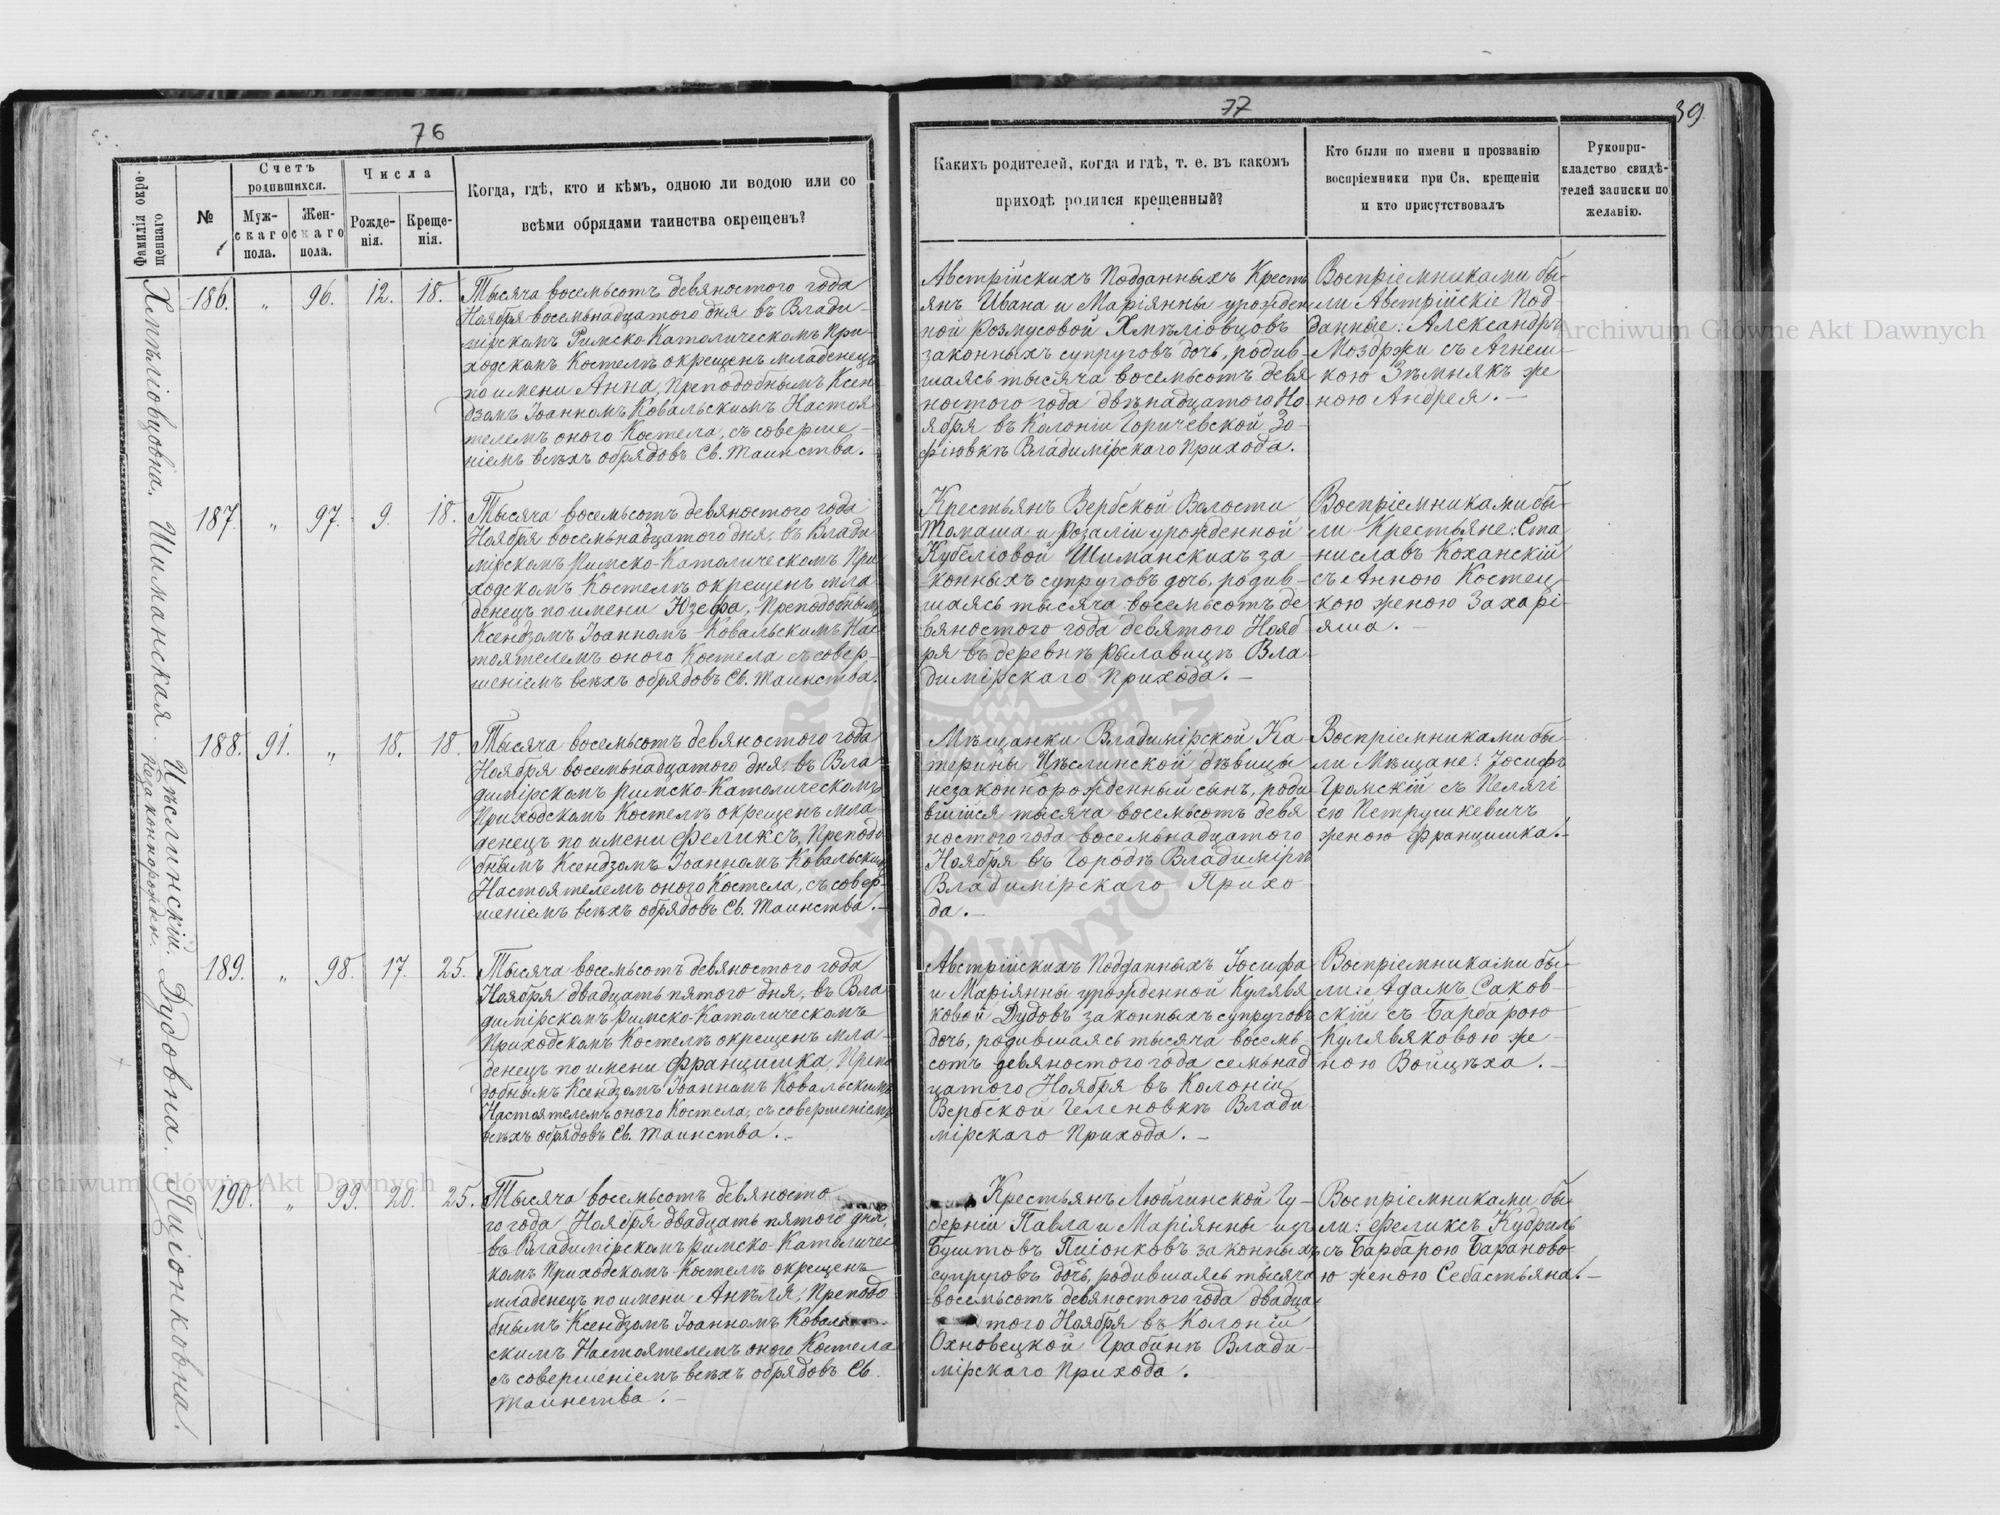 76
77
39
Фамилія окрещеннаго
№
Счетъ родившихся.
Мужскаго пола.
Женскаго пола.
Числа
Рожденія.
Крещенія.
Когда, гдѣ, кто и кѣмъ, одною ли водою или со
всѣми обрядами таинства окрещенъ?
Какихъ родителей, когда и гдѣ, т. е. въ какомъ
приходѣ родился крещенный?
Кто были по имени и прозванію
воспріемники при Св. крещеніи
и кто присутствовалъ
Рукопри-
кладство свидѣ-
телей записки по
желанію.
Хмѣліовцовна.
186. „ 96. 12. 18.
Тысяча восемьсотъ девяностого года
Ноября восемьнадцатого дня въ Влади-
мірскомъ Римско-Католическомъ При-
ходскомъ Костелѣ окрещенъ младенецъ
по имени Анна, Преподобнымъ Ксен-
дзомъ Іоанномъ Ковальскимъ Настоя
телемъ оного Костела, съ соверше-
ніемъ всѣхъ обрядовъ Св. Таинства.
Австрійскихъ Подданныхъ Кресть
янъ Ивана и Маріянны урожден
ной Розмусовой Хмѣліовцовъ
законныхъ супруговъ дочь, родив-
шаясь тысяча восемьсотъ девя
ностого года двѣнадцатого Но-
ября въ Колоніи Горичевской Зо-
фіювкѣ Владимірскаго Прихода.
Воспріемниками бы-
ли Австрійскіе Под-
данные: Александръ
Моздржи съ Агнеш-
кою Зѣмнякъ же
ною Андрея. —
Шиманская.
187. „ 97. 9. 18.
Тысяча восемьсотъ девяностого года
Ноября восемьнадцатого дня, въ Влади
мірскомъ Римско-Католическомъ При
ходскомъ Костелѣ окрещенъ мла
денецъ по имени Юзефа, Преподобнымъ
Ксендзомъ Іоанномъ Ковальскимъ Нас-
тоятелемъ оного Костела съ совер-
шеніемъ всѣхъ обрядовъ Св. Таинства.
Крестьянъ Вербской Волости
Томаша и Розаліи урожденной
Кубеліовой Шиманскихъ за
конныхъ супруговъ дочь, родив-
шаясь тысяча восемьсотъ де
вяностого года девятого Нояб
ря въ деревнѣ Рылавицѣ Вла-
димірскаго Прихода. —
Воспріемниками бы-
ли Крестьяне: Ста
ниславъ Коханскій
съ Анною Костец-
кою женою Захарі-
яша. —
Цѣслинскій.
Незаконнорожден.
188. 91. „ 18. 18.
Тысяча восемьсотъ девяностого года
Ноября восемьнадцатого дня, въ Вла-
димірскомъ Римско-Католическомъ
Приходскомъ Костелѣ окрещенъ мла-
денецъ по имени Феликсъ, Преподо
бнымъ Ксендзомъ Іоанномъ Ковальскимъ
Настоятелемъ оного Костела, съ совер-
шеніемъ всѣхъ обрядовъ Св. Таинства. —
Мѣщанки Владимірской Ка-
терины Цѣслинской дѣвицы
незаконнорожденный сынъ, роди
вшійся тысяча восемьсотъ девя
ностого года восемьнадцатого
Ноября въ Городѣ Владимірѣ
Владимірскаго Прихо
да. —
Воспріемниками бы-
ли Мѣщане: Іосифъ
Громскій съ Пелагі
ею Петрушкевичъ
женою Францишка. —
Дудовна.
189. „ 98. 17. 25.
Тысяча восемьсотъ девяностого года
Ноября двадцать пятого дня, въ Вла
димірскомъ Римско-Католическомъ
Приходскомъ Костелѣ окрещенъ мла-
денецъ по имени Францишка, Препо
добнымъ Ксендзомъ Іоанномъ Ковальскимъ
Настоятелемъ оного Костела, съ совершеніемъ
всѣхъ обрядовъ Св. Таинства. —
Австрійскихъ Подданныхъ Іосифа
и Маріянны урожденной Кулявя
ковой Дудовъ законныхъ супруговъ
дочь, родившаясь тысяча восемь
сотъ девяностого года семьнад
цатого Ноября въ Колоніи
Вербской Геленовкѣ Влади
мірскаго Прихода. —
Воспріемниками бы-
ли: Адамъ Саков-
скій съ Барбарою
Кулявяковою же-
ною Войцѣха. —
Піонковна.
190. „ 99. 20. 25.
Тысяча восемьсотъ девяносто
го года Ноября двадцать пятого дня,
въ Владимірскомъ Римско-Католичес
комъ Приходскомъ Костелѣ окрещенъ
младенецъ по имени Анѣля, Преподо
бнымъ Ксендзомъ Іоанномъ Коваль
скимъ Настоятелемъ оного Костела
съ совершеніемъ всѣхъ обрядовъ Св.
Таинства. —
Крестьянъ Люблинской Гу-
берніи Павла и Маріянны изъ
Буштовъ Піонковъ законныхъ
супруговъ дочь, родившаясь тысяча
восемьсотъ девяностого года двадца
того Ноября въ Колоніи
Охновецкой Грабинѣ Влади-
мірскаго Прихода.
Воспріемниками бы
ли: Феликсъ Кудриль
съ Барбарою Бараново
ю женою Себастьяна. —
Archiwum Główne Akt Dawnych
Archiwum Główne Akt Dawnych